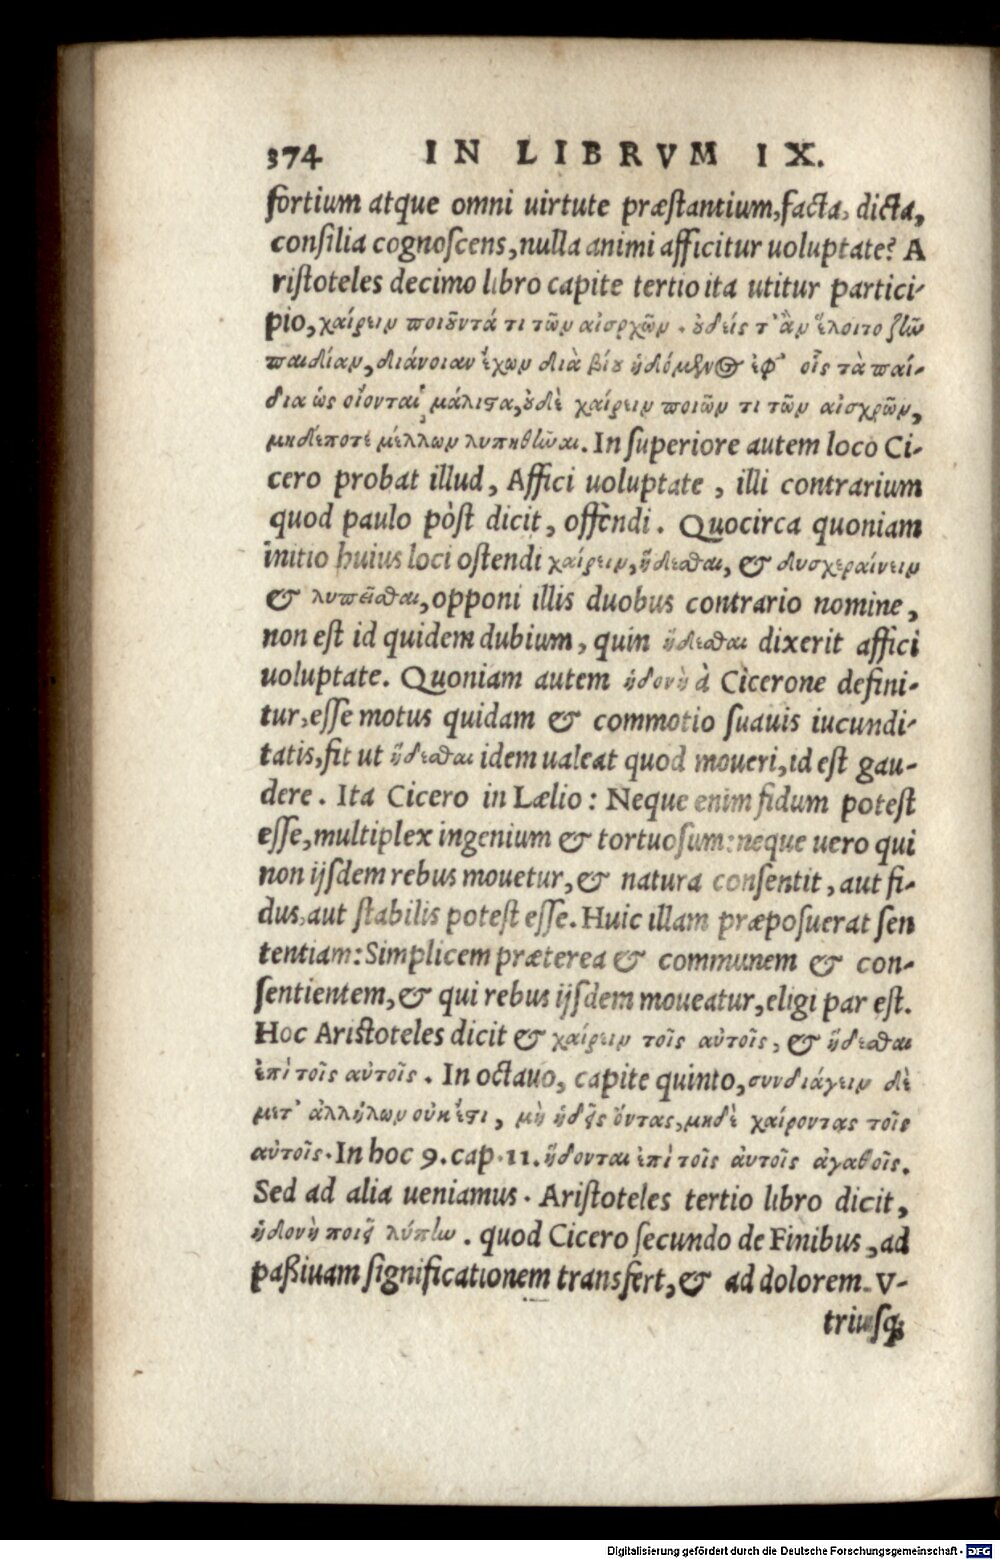 374 IN LIBRVM IX.
fortium atque omni uirtute præstantium, facta, dicta,
consilia cognoscens, nulla animi afficitur uoluptate? A
ristoteles decimo libro capite tertio ita utitur partici-
pio, χαίρειν ποιοῦντά τι τῶν αἰσρχῶν. οὐδείς τ' ἂν ἕλοιτο ζῆν
παιδίαν, διάνοιαν ἔχων διὰ βίου ἡδόμενος ἐφ' οἷς τὰ παί-
δια ὡς οἴονται μάλιστα, οὐδὲ χαίρειν ποιῶν τι τῶν αἰσχρῶν,
μηδέποτε μέλλων λυπηθῆναι. In superiore autem loco Ci-
cero probat illud, Affici uoluptate, illi contrarium
quod paulo pòst dicit, offendi. Quocirca quoniam
initio huius loci ostendi χαίρειν, ἥδεσθαι, & δυσχεραίνειν
& λυπεῖσθαι, opponi illis duobus contrario nomine,
non est id quidem dubium, quin ἥδεσθαι dixerit affici
uoluptate. Quoniam autem ἡδονὴ à Cicerone defini-
tur, esse motus quidam & commotio suauis iucundi-
tatis, fit ut ἥδεσθαι idem ualeat quod moueri, id est gau-
dere. Ita Cicero in Lælio: Neque enim fidum potest
esse, multiplex ingenium & tortuosum: neque uero qui
non ijsdem rebus mouetur, & natura consentit, aut fi-
dus, aut stabilis potest esse. Huic illam præposuerat sen
tentiam: Simplicem præterea & communem & con-
sentientem, & qui rebus ijsdem moueatur, eligi par est.
Hoc Aristoteles dicit & χαίρειν τοῖς αὐτοῖς, & ἥδεσθαι
ἐπὶ τοῖς αὐτοῖς. In octauo, capite quinto, συνδιάγειν δὲ
μετ' ἀλλήλων οὐκ ἔστι, μὴ ἡδεῖς ὄντας, μηδὲ χαίροντας τοῖς
αὐτοῖς. In hoc 9. cap. 11. ἥδονται ἐπὶ τοῖς ἀυτοῖς ἀγαθοῖς.
Sed ad alia ueniamus. Aristoteles tertio libro dicit,
ἡδονὴ ποιεῖ λύπην. quod Cicero secundo de Finibus, ad
paßiuam significationem transfert, & ad dolorem. V-
triusq;
Digitalisierung gefördert durch die Deutsche Forschungsgemeinschaft - DFG